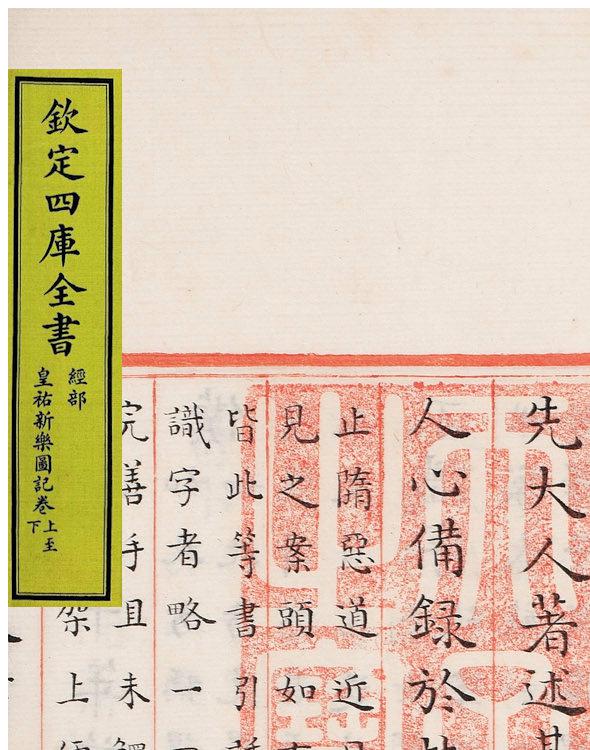 欽定四庫全書
經部
皇祐新樂圖記卷上至下
先大人著述
人心備録於
止隋惡道近
見之案頭如
皆此等書引
識字者略一
完善手且未
架上